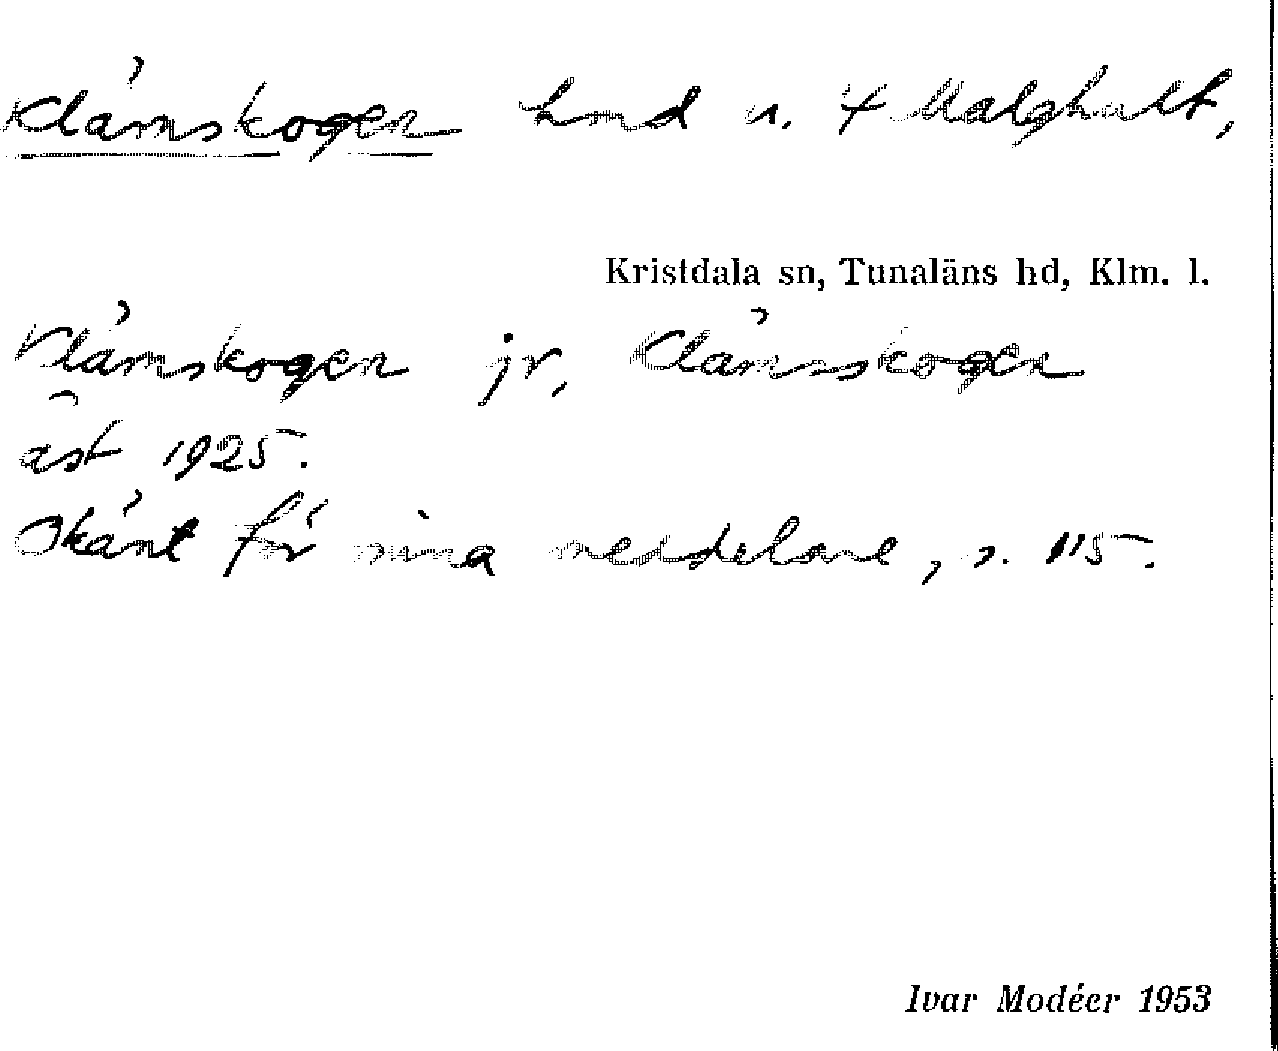 Klämskogen hmd u. † Malghult,
Kristdala sn, Tunaläns hd, Klm. l.
Klämskogen jr, Klämskogen
äst 1925.
Okänt för mina meddelare, s. 115.
Ivar Modéer 1953